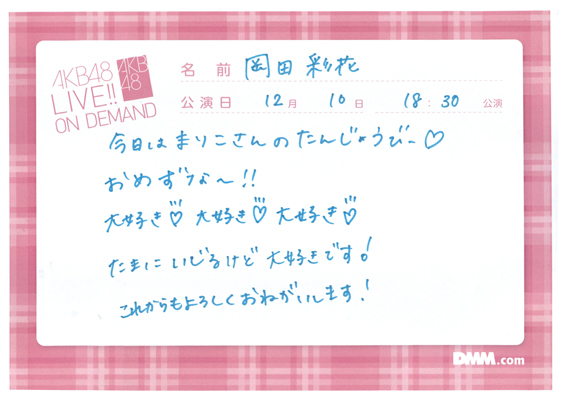 AKB48
LIVE!!
ON DEMAND
AKB
48
名 前 岡田 彩花
公演日 12月 10日 18:30 公演
今日はまりこさんのたんじょうびー♡
おめずな〜!!
大好き♡ 大好き♡ 大好き♡
たまにいじるけど大好きです!
これからもよろしくおねがいします!
DMM.com